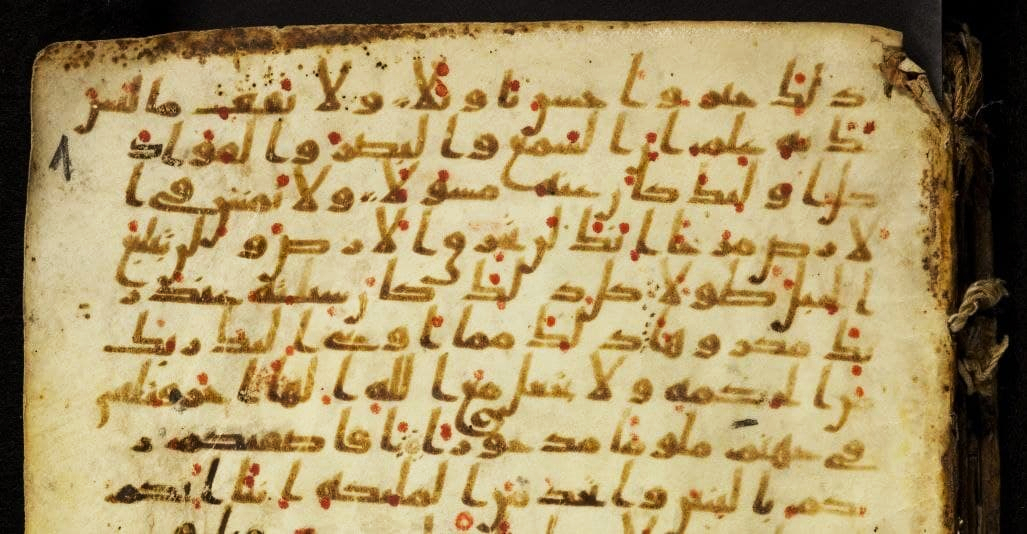 ذلك خير وا حسن تا و يلا ولا تقف ما ليس
لك به علم ا ن ا لسمع وا لبصر وا لفواد
كل ا و ليك كا ن عنه مسولا ولا تمش في ا
لا رض مر حا ا نك لن تخر ق ا لا ر ض و لن تبلغ
ا لجبل طولا كل ذ لك كا ن سييه عند ر
بك مكر و ها ذ لك مما ا وحى ا ليك ر بك
من ا لحكمه ولا تجعل مع ا لله ا لها ا خر فتلقى
في جهنم ملو ما مد حو ر ا ا فا صفيكم ر
بكم با لبنين وا تخذ من ا لمليكه ا نثا ا نكم
1